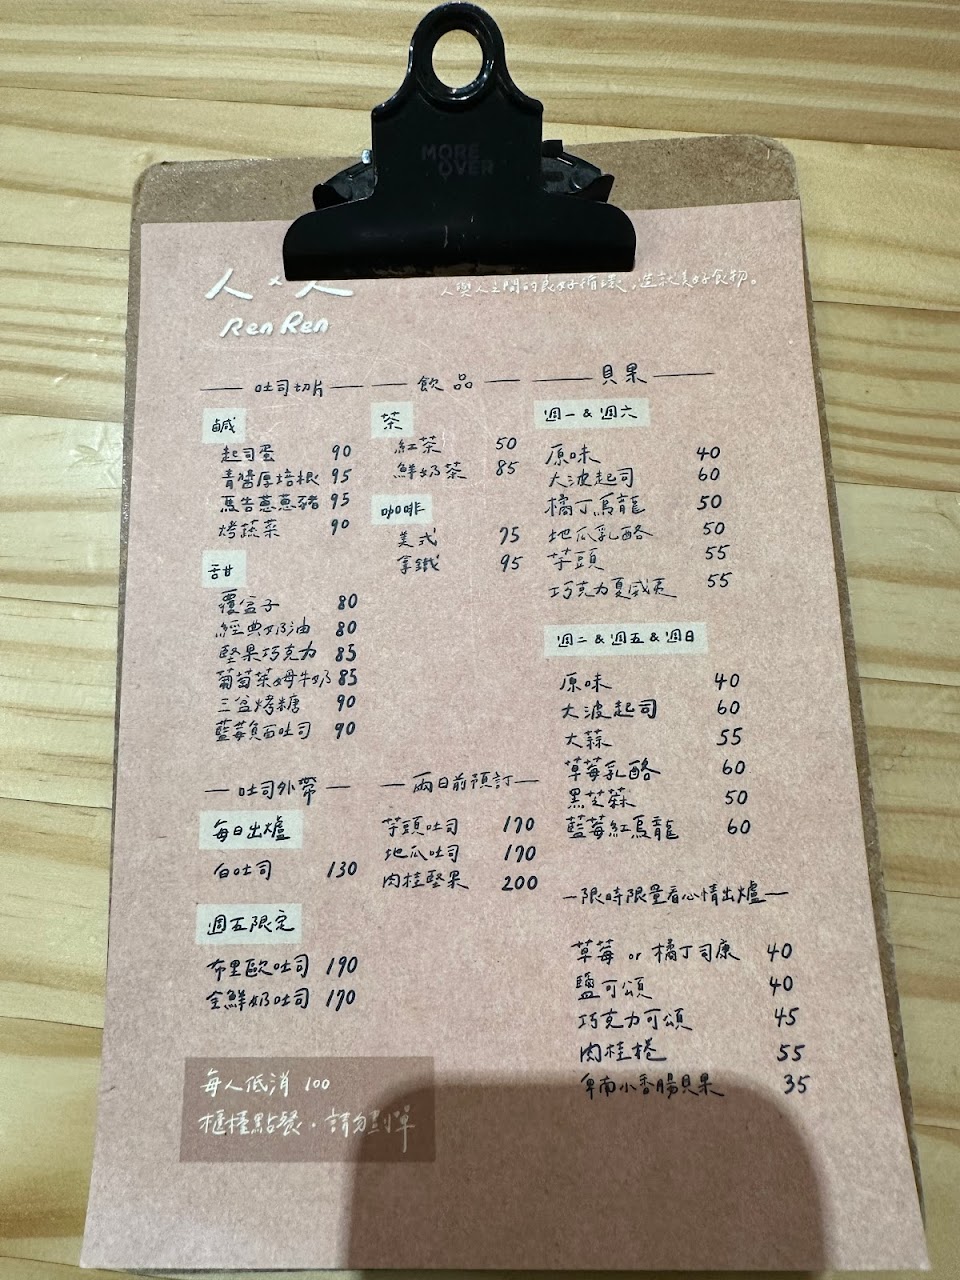 MORE
OVER
人×人
人與人之間的良好循環,造就美好食物。
Ren Ren
吐司切片
鹹
起司蛋 90
青醬厚培根 95
馬告蔥蔥豬 95
烤蔬菜 90
甜
覆盆子 80
經典奶油 80
堅果巧克力 85
葡萄萊姆牛奶 85
三盆烤糖 90
藍莓貝西吐司 90
飲品
茶
紅茶 50
鮮奶茶 85
咖啡
美式 75
拿鐵 95
貝果
週一 & 週六
原味 40
大波起司 60
橘丁烏龍 50
地瓜乳酪 50
芋頭 55
巧克力夏威夷 55
週二 & 週五 & 週日
原味 40
大波起司 60
大蒜 55
草莓乳酪 60
黑芝麻 50
藍莓紅烏龍 60
限時限量看心情出爐
草莓 or 橘丁司康 40
鹽可頌 40
巧克力可頌 45
肉桂捲 55
卑南小香腸貝果 35
吐司外帶
每日出爐
白吐司 130
週五限定
布里歐吐司 190
全鮮奶吐司 170
兩日前預訂
芋頭吐司 170
地瓜吐司 170
肉桂堅果 200
每人低消 100
櫃檯點餐.請勿劃單